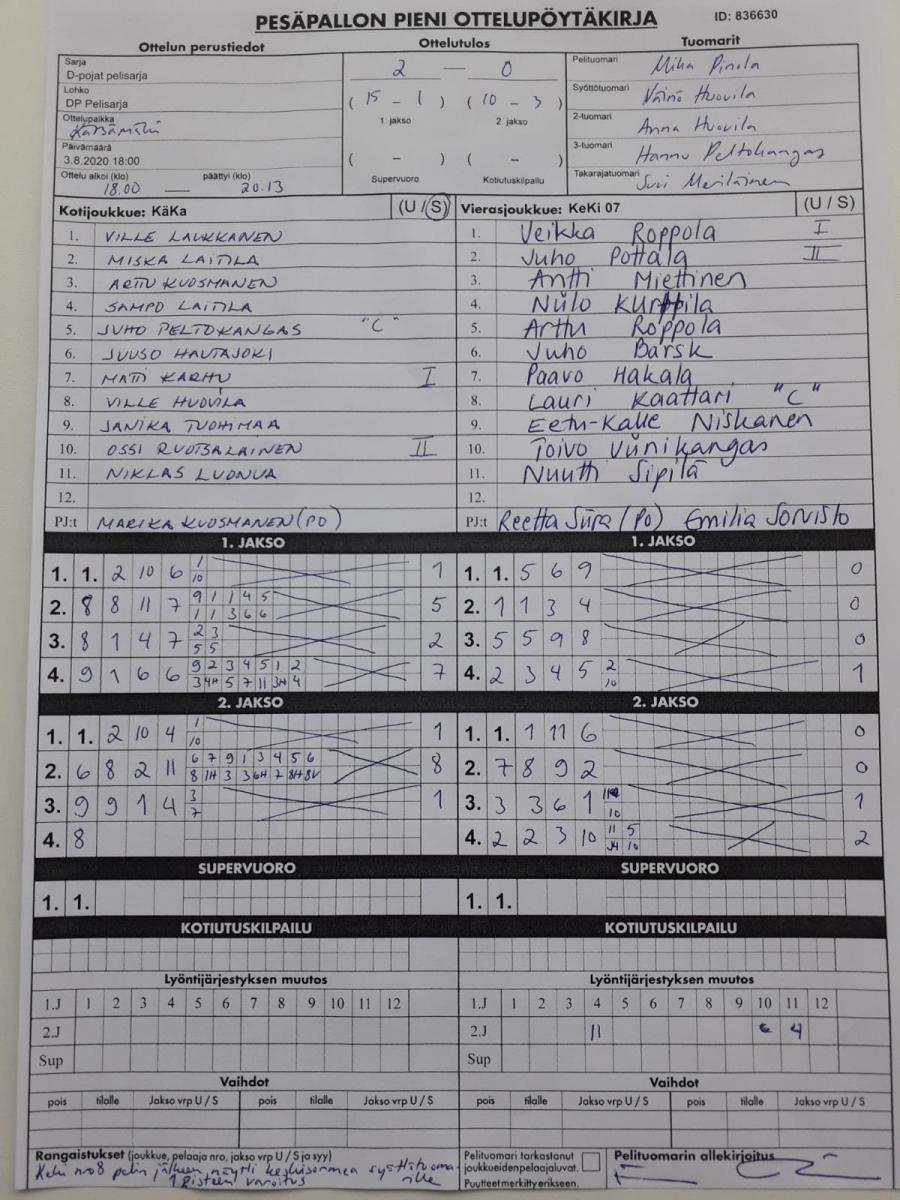 PESÄPALLON PIENI OTTELUPÖYTÄKIRJA ID: 836630
Ottelun perustiedot Ottelutulos Tuomarit
Sarja
D-pojat pelisarja
Lohko
DP Pelisarja
Ottelupaikka
Kärsämäki
Päivämäärä
3.8.2020 18:00
Ottelu alkoi (klo) päättyi (klo)
18.00 — 20.13
2 — 0
(15 - 1) (10 - 3)
1. jakso 2. jakso
( - ) ( - )
Supervuoro Kotiutuskilpailu
Pelituomari Mika Pinola
Syöttötuomari Väinö Huovila
2-tuomari Anna Huovila
3-tuomari Hannu Peltokangas
Takarajatuomari Suvi Meriläinen
Kotijoukkue: KäKa (U / S)
1. VILLE LAUKKANEN
2. MISKA LAITILA
3. ARTTU KUOSMANEN
4. SAMPO LAITILA
5. JUHO PELTOKANGAS "C"
6. JUUSO HAUTAJOKI
7. MATTI KARHU I
8. VILLE HUOVILA
9. JANIKA TUOHIMAA
10. OSSI RUOTSALAINEN II
11. NIKLAS LUONUA
12.
PJ:t MARIKA KUOSMANEN (PO)
Vierasjoukkue: KeKi 07 (U / S)
1. Veikka Roppola I
2. Juho Pottala II
3. Antti Miettinen
4. Niilo Kurppila
5. Arttu Roppola
6. Juho Barsk
7. Paavo Hakala
8. Lauri Kaattari "C"
9. Eetu-Kalle Niskanen
10. Toivo Viinikangas
11. Nuutti Sipilä
12.
PJ:t Reetta Siira (PO) Emilia Sorvisto
1. JAKSO
1. 1. 2 10 6 1 1
10
2. 8 8 11 7 9 1 1 4 5 5
1 1 3 6 6
3. 8 1 4 7 2 3 2
5 5
4. 9 1 6 6 9 2 3 4 5 1 2 7
3 4H 5 7 11 3H 4
1. JAKSO
1. 1. 5 6 9 0
2. 1 1 3 4 0
3. 5 5 9 8 0
4. 2 3 4 5 2 1
10
2. JAKSO
1. 1. 2 10 4 1 1
10
2. 6 8 2 11 6 7 9 1 3 4 5 6 8
8 1H 3 3 6H 7 8H 8V
3. 9 9 1 4 3 1
7
4. 8
2. JAKSO
1. 1. 1 11 6 0
2. 7 8 9 2 0
3. 3 3 6 1 1
10
4. 2 2 3 10 11 5 2
10
SUPERVUORO
1. 1.
SUPERVUORO
1. 1.
KOTIUTUSKILPAILU
KOTIUTUSKILPAILU
Lyöntijärjestyksen muutos
1.J 1 2 3 4 5 6 7 8 9 10 11 12
2.J
Sup
Lyöntijärjestyksen muutos
1.J 1 2 3 4 5 6 7 8 9 10 11 12
2.J 11 6 4
Sup
Vaihdot
pois tilalle Jakso vrp U / S pois tilalle Jakso vrp U / S
Vaihdot
pois tilalle Jakso vrp U / S pois tilalle Jakso vrp U / S
Rangaistukset (joukkue, pelaaja nro, jakso vrp U / S ja syy)
KeKi nro8 pelin jälkeen näytti keskisormea syöttötuoma-
rille
1 pisteen varoitus
Pelituomari tarkastanut
joukkueiden pelaajaluvat.
Puutteet merkitty erikseen.
Pelituomarin allekirjoitus